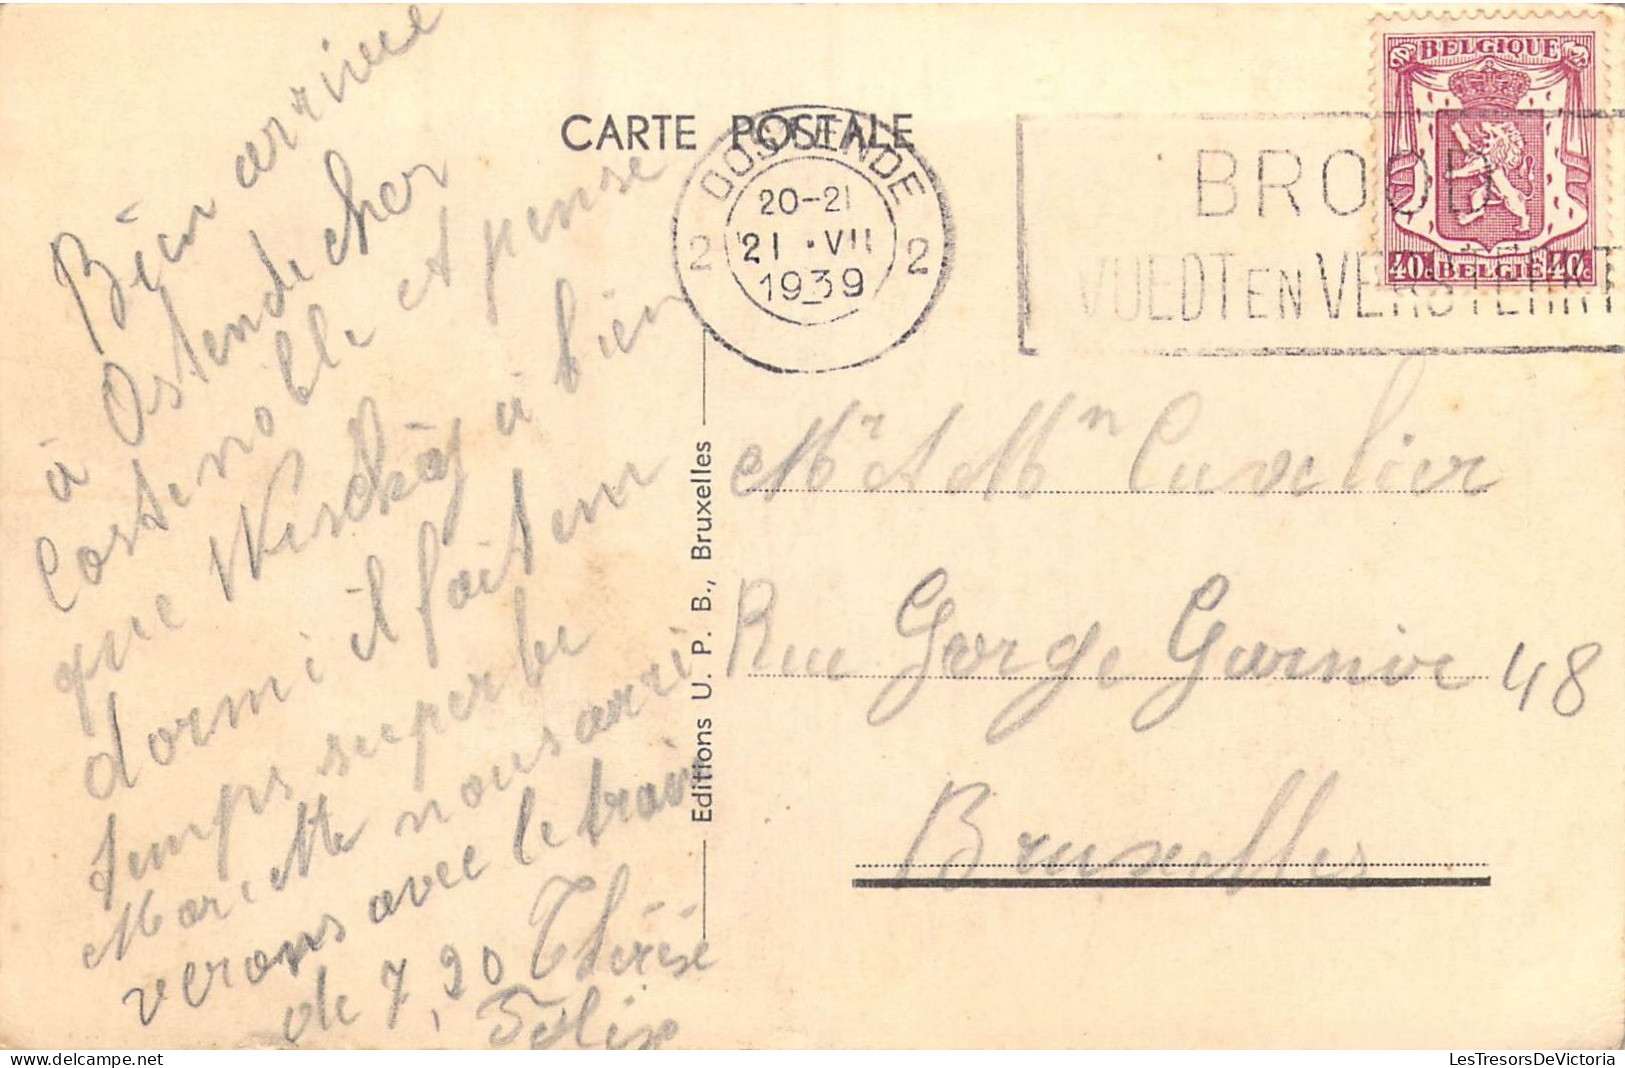 Bien arrivée
à Ostende cher
Costenoble et pense
que Wischey à bien
dormi il fait un
temps superbe
Mariette nous arri
verons avec le train
de 7,20 Thérèse
Félix
CARTE POSTALE
OOSTENDE
20-21
21 · VII
1939
2 2
BROOD
VOEDT EN VERSTERKT
BELGIQUE
40c BELGIE 40c
Editions U. P. B., Bruxelles
Mr & Mm Cuvelier
Rue Gorge Garnir 48
Bruxelles
LesTresorsDeVictoria